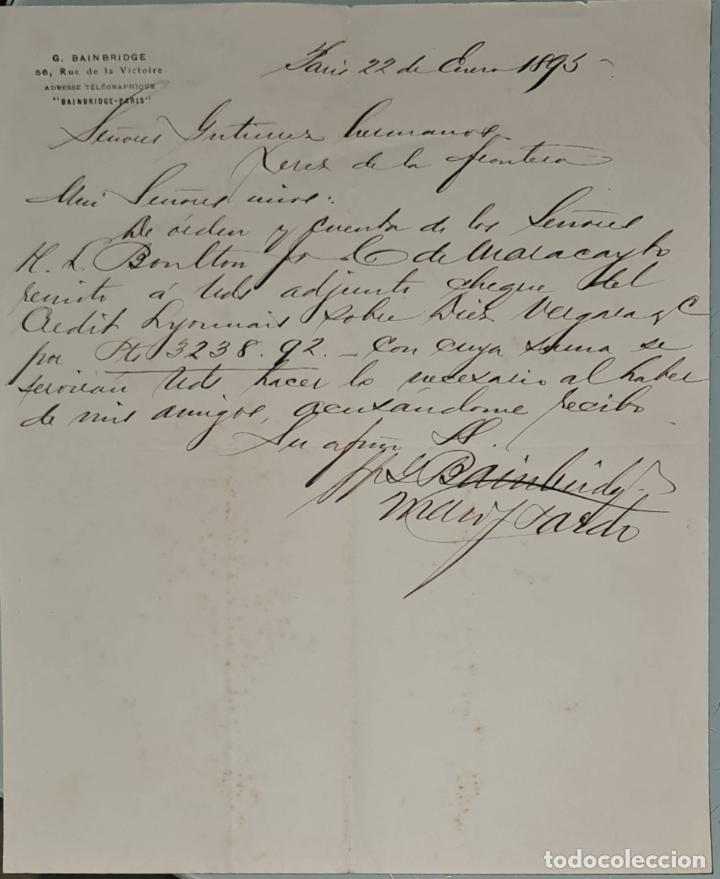 G. BAINBRIDGE
56, Rue de la Victoire
ADRESSE TÉLÉGRAPHIQUE
"BAINBRIDGE-PARIS"
Paris 22 de Enero 1895
Señores Gutierrez hermanos
Jerez de la frontera
Mui Señores mios:
De órden y cuenta de los Señores
H. L. Boulton Jr & C de Maracaybo
remito á Uds adjunto cheque del
Credit Lyonnais sobre Diez Vergara y C
por Pts 3238.92. con cuya suma se
servirán Uds hacer lo necesario al haber
de mis amigos, acusándome recibo
Su afmo SS.
pp G Bainbridge
todocoleccion.net